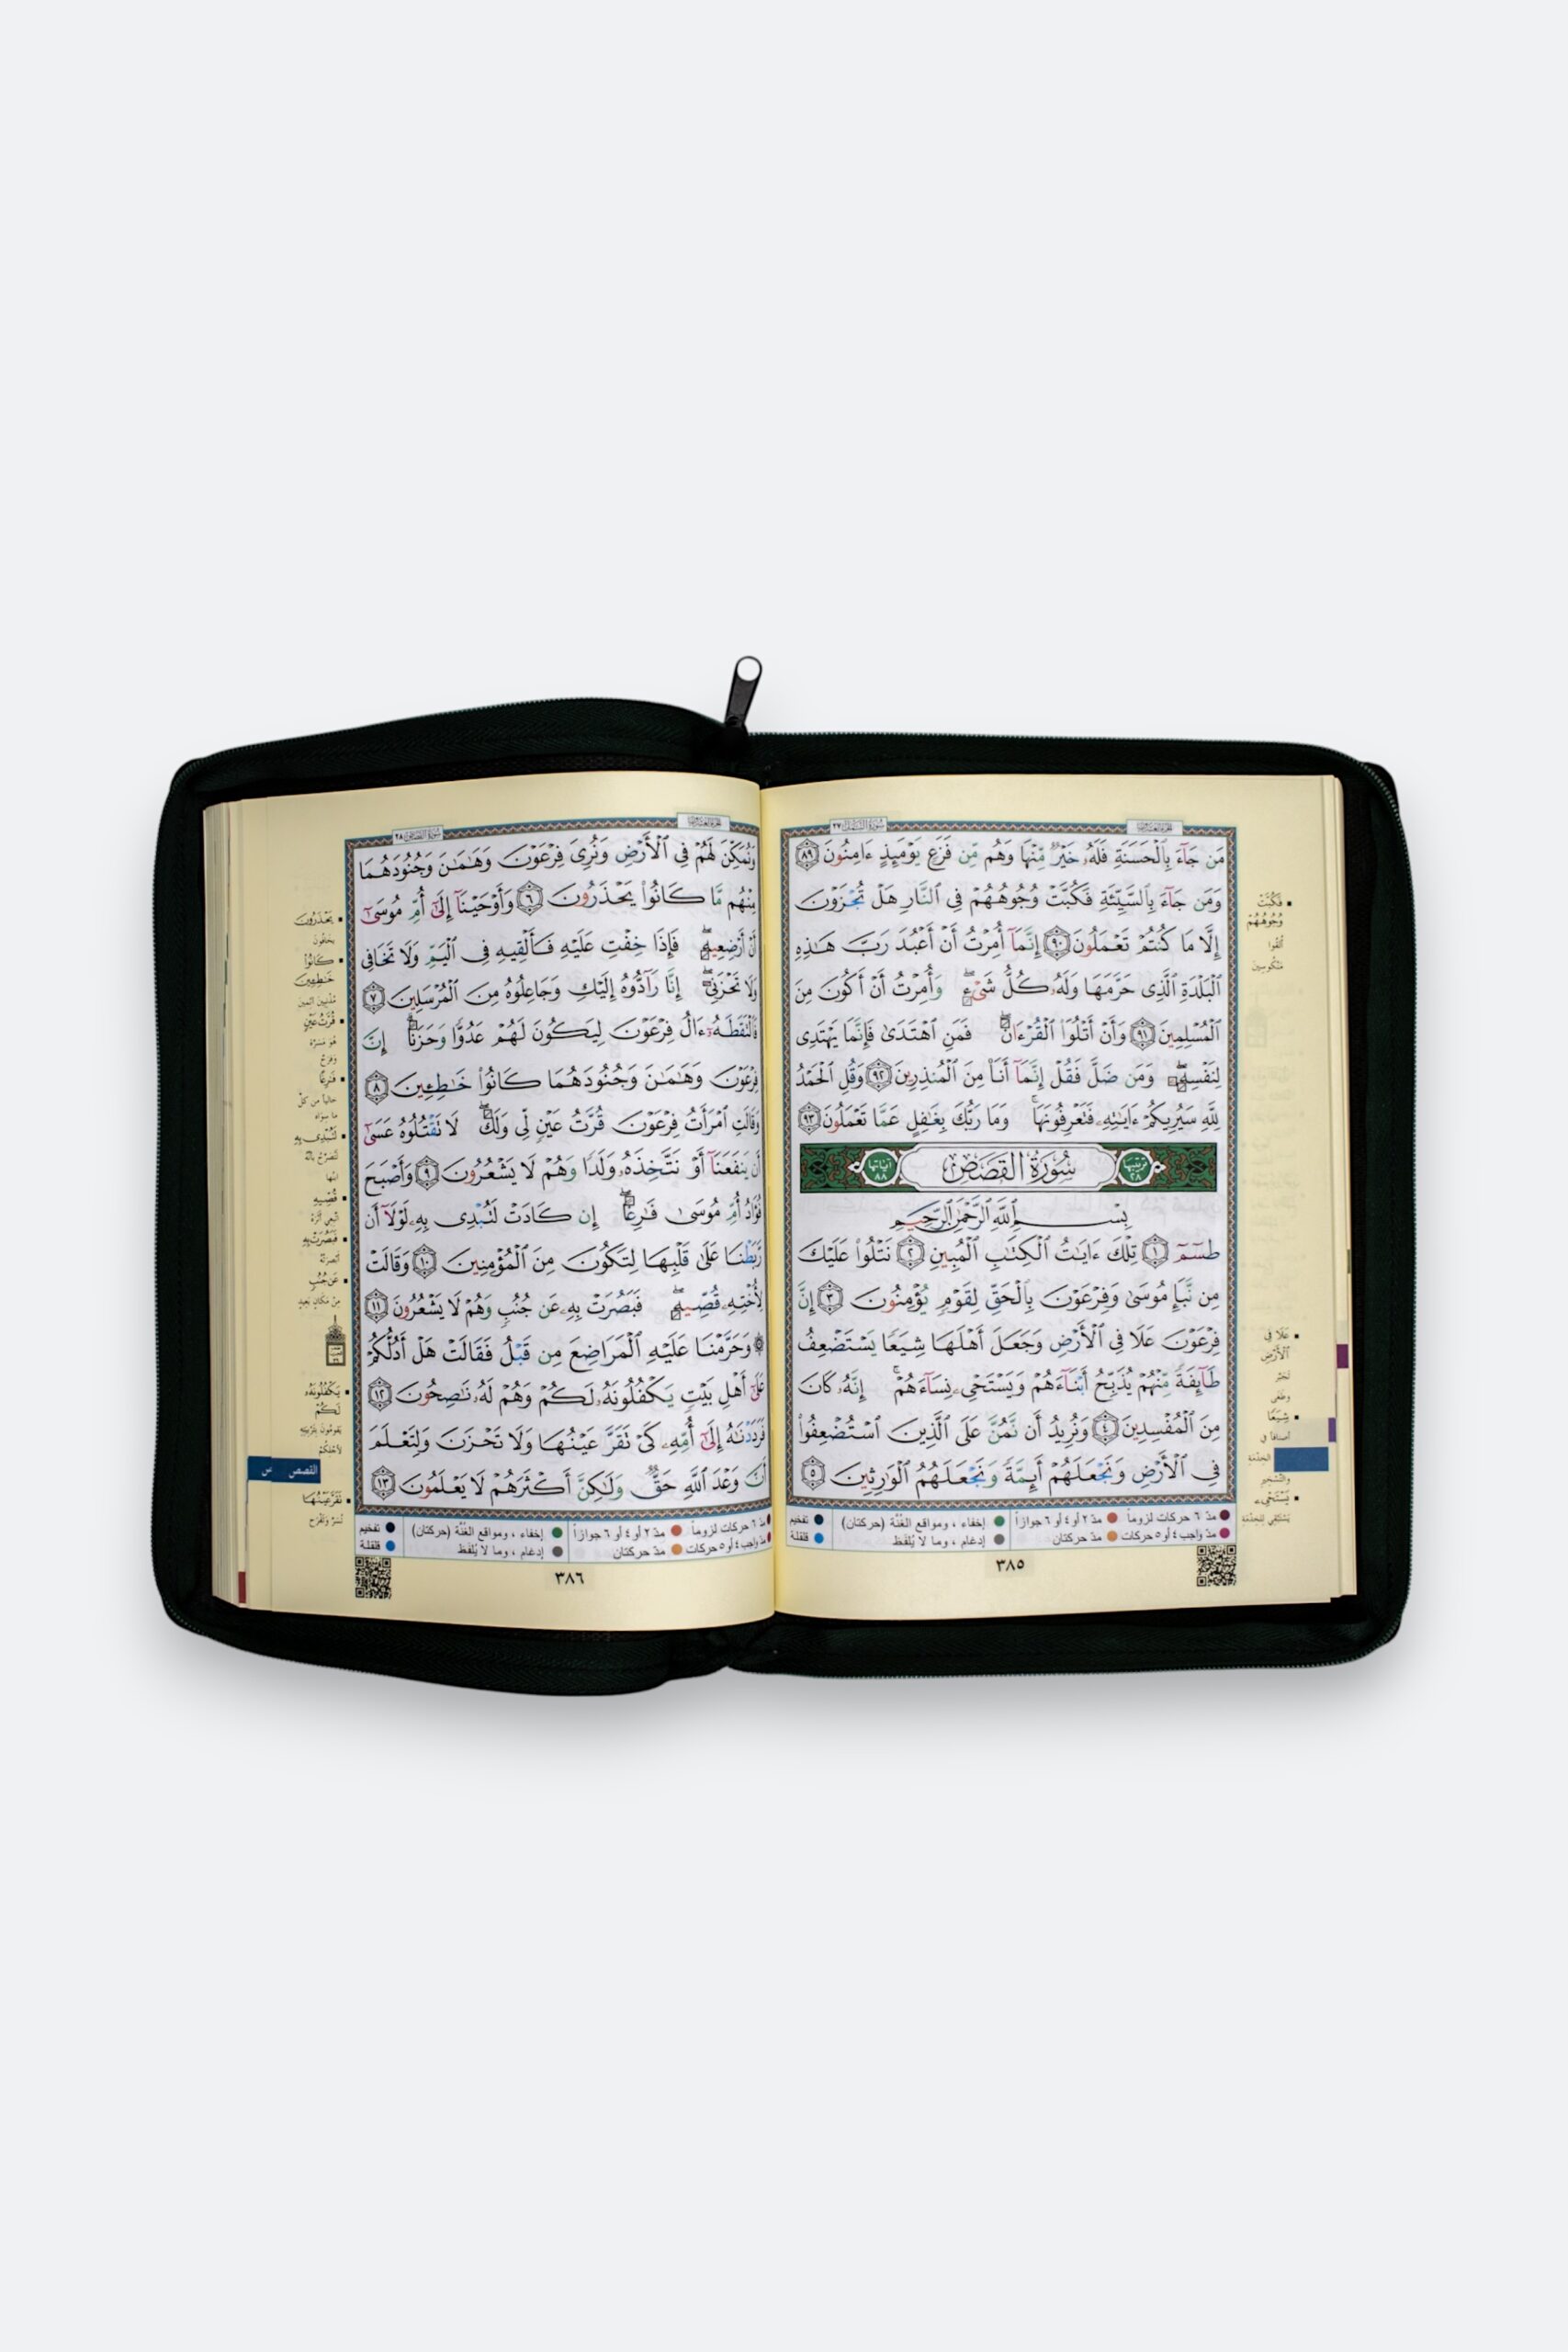 مَن جَآءَ بِٱلْحَسَنَةِ فَلَهُۥ خَيْرٌ مِّنْهَا وَهُم مِّن فَزَعٍ يَوْمَئِذٍ ءَامِنُونَ ٨٩
وَمَن جَآءَ بِٱلسَّيِّئَةِ فَكُبَّتْ وُجُوهُهُمْ فِى ٱلنَّارِ هَلْ تُجْزَوْنَ
إِلَّا مَا كُنتُمْ تَعْمَلُونَ ٩٠ إِنَّمَآ أُمِرْتُ أَنْ أَعْبُدَ رَبَّ هَـٰذِهِ
ٱلْبَلْدَةِ ٱلَّذِى حَرَّمَهَا وَلَهُۥ كُلُّ شَىْءٍ ۖ وَأُمِرْتُ أَنْ أَكُونَ مِنَ
ٱلْمُسْلِمِينَ ٩١ وَأَنْ أَتْلُوَا۟ ٱلْقُرْءَانَ ۖ فَمَنِ ٱهْتَدَىٰ فَإِنَّمَا يَهْتَدِى
لِنَفْسِهِۦ ۖ وَمَن ضَلَّ فَقُلْ إِنَّمَآ أَنَا۠ مِنَ ٱلْمُنذِرِينَ ٩٢ وَقُلِ ٱلْحَمْدُ
لِلَّهِ سَيُرِيكُمْ ءَايَـٰتِهِۦ فَتَعْرِفُونَهَا ۚ وَمَا رَبُّكَ بِغَـٰفِلٍ عَمَّا تَعْمَلُونَ ٩٣
ترتيبها ٢٨ سُورَةُ القَصَصِ آياتها ٨٨
بِسْمِ ٱللَّهِ ٱلرَّحْمَـٰنِ ٱلرَّحِيمِ
طسٓمٓ ١ تِلْكَ ءَايَـٰتُ ٱلْكِتَـٰبِ ٱلْمُبِينِ ٢ نَتْلُوا۟ عَلَيْكَ
مِن نَّبَإِ مُوسَىٰ وَفِرْعَوْنَ بِٱلْحَقِّ لِقَوْمٍ يُؤْمِنُونَ ٣ إِنَّ
فِرْعَوْنَ عَلَا فِى ٱلْأَرْضِ وَجَعَلَ أَهْلَهَا شِيَعًا يَسْتَضْعِفُ
طَآئِفَةً مِّنْهُمْ يُذَبِّحُ أَبْنَآءَهُمْ وَيَسْتَحْىِۦ نِسَآءَهُمْ ۚ إِنَّهُۥ كَانَ
مِنَ ٱلْمُفْسِدِينَ ٤ وَنُرِيدُ أَن نَّمُنَّ عَلَى ٱلَّذِينَ ٱسْتُضْعِفُوا۟
فِى ٱلْأَرْضِ وَنَجْعَلَهُمْ أَئِمَّةً وَنَجْعَلَهُمُ ٱلْوَٰرِثِينَ ٥
فَكُبَّتْ
وُجُوهُهُمْ
أُلْقُوا
مَنْكُوسِينَ
عَلَا فِى
ٱلْأَرْضِ
تَجَبَّرَ
وَطَغَى
شِيَعًا
أصنافاً في
الخِدْمَة
والتَّسْخِيرِ
يَسْتَحْىِۦ
يَسْتَبْقِي لِلخِدْمَة
مدّ ٦ حركات لزوماً مدّ ٢ أو ٤ أو ٦ جوازاً إخفاء ، ومواقع الغُنَّة (حركتان) تفخيم
مدّ واجب ٤ أو ٥ حركات مدّ حركتان إدغام ، وما لا يُلفَظ قلقلة
٣٨٥
وَنُمَكِّنَ لَهُمْ فِى ٱلْأَرْضِ وَنُرِىَ فِرْعَوْنَ وَهَـٰمَـٰنَ وَجُنُودَهُمَا
مِنْهُم مَّا كَانُوا۟ يَحْذَرُونَ ٦ وَأَوْحَيْنَآ إِلَىٰٓ أُمِّ مُوسَىٰٓ
أَنْ أَرْضِعِيهِ ۖ فَإِذَا خِفْتِ عَلَيْهِ فَأَلْقِيهِ فِى ٱلْيَمِّ وَلَا تَخَافِى
وَلَا تَحْزَنِىٓ ۖ إِنَّا رَآدُّوهُ إِلَيْكِ وَجَاعِلُوهُ مِنَ ٱلْمُرْسَلِينَ ٧
فَٱلْتَقَطَهُۥٓ ءَالُ فِرْعَوْنَ لِيَكُونَ لَهُمْ عَدُوًّا وَحَزَنًا ۗ إِنَّ
فِرْعَوْنَ وَهَـٰمَـٰنَ وَجُنُودَهُمَا كَانُوا۟ خَـٰطِـِٔينَ ٨
وَقَالَتِ ٱمْرَأَتُ فِرْعَوْنَ قُرَّتُ عَيْنٍ لِّى وَلَكَ ۖ لَا تَقْتُلُوهُ عَسَىٰٓ
أَن يَنفَعَنَآ أَوْ نَتَّخِذَهُۥ وَلَدًا وَهُمْ لَا يَشْعُرُونَ ٩ وَأَصْبَحَ
فُؤَادُ أُمِّ مُوسَىٰ فَـٰرِغًا ۖ إِن كَادَتْ لَتُبْدِى بِهِۦ لَوْلَآ أَن
رَّبَطْنَا عَلَىٰ قَلْبِهَا لِتَكُونَ مِنَ ٱلْمُؤْمِنِينَ ١٠ وَقَالَتْ
لِأُخْتِهِۦ قُصِّيهِ ۖ فَبَصُرَتْ بِهِۦ عَن جُنُبٍ وَهُمْ لَا يَشْعُرُونَ ١١
۞ وَحَرَّمْنَا عَلَيْهِ ٱلْمَرَاضِعَ مِن قَبْلُ فَقَالَتْ هَلْ أَدُلُّكُمْ
عَلَىٰٓ أَهْلِ بَيْتٍ يَكْفُلُونَهُۥ لَكُمْ وَهُمْ لَهُۥ نَـٰصِحُونَ ١٢
فَرَدَدْنَـٰهُ إِلَىٰٓ أُمِّهِۦ كَىْ تَقَرَّ عَيْنُهَا وَلَا تَحْزَنَ وَلِتَعْلَمَ
أَنَّ وَعْدَ ٱللَّهِ حَقٌّ وَلَـٰكِنَّ أَكْثَرَهُمْ لَا يَعْلَمُونَ ١٣
يَحْذَرُونَ
يَخافُونَ
كَانُوا۟
خَـٰطِـِٔينَ
مُذْنِبِينَ آثِمِين
قُرَّتُ عَيْنٍ
هُوَ مَسَرَّة
وَفَرَحٌ
فَـٰرِغًا
خالياً من كلّ
ما سِوَاه
لَتُبْدِى بِهِۦ
لَتُصَرِّحُ بأنّه
ابنُها
قُصِّيهِ
اتَّبِعِي أثَرَهُ
فَبَصُرَتْ بِهِۦ
أبْصَرَتْه
عَن جُنُبٍ
مِنْ مَكَانٍ بَعِيدٍ
يَكْفُلُونَهُۥ
لَكُمْ
يَقومُونَ بتَرْبِيَتِه
لأجْلِكُمْ
القصص
تَقَرَّ عَيْنُهَا
تُسَرَّ وَتَفْرَح
مدّ ٦ حركات لزوماً مدّ ٢ أو ٤ أو ٦ جوازاً إخفاء ، ومواقع الغُنَّة (حركتان) تفخيم
مدّ واجب ٤ أو ٥ حركات مدّ حركتان إدغام ، وما لا يُلفَظ قلقلة
٣٨٦